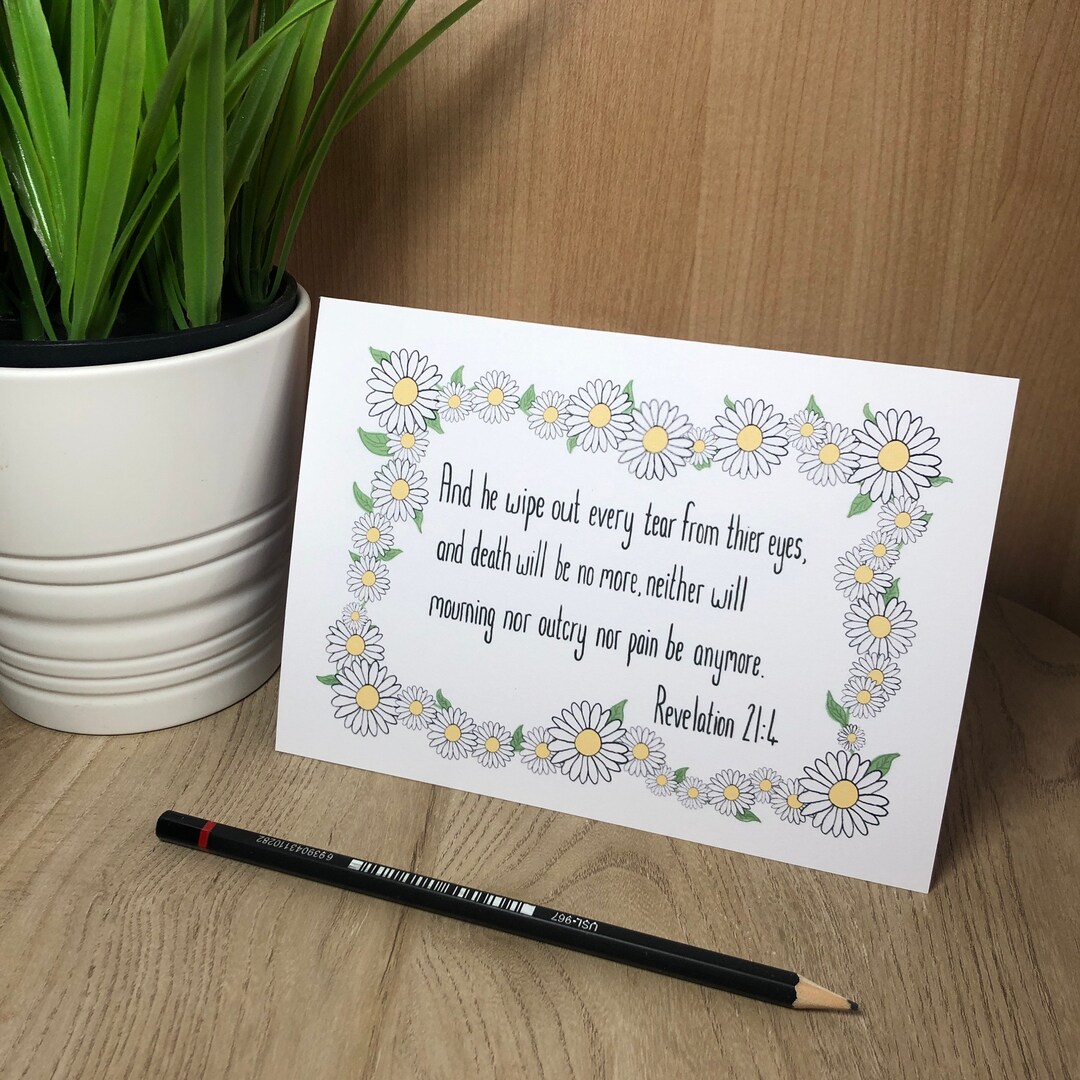 And he wipe out every tear from thier eyes,
and death will be no more, neither will
mourning nor outcry nor pain be anymore.
Revelation 21:4
6939043110282
USL-967